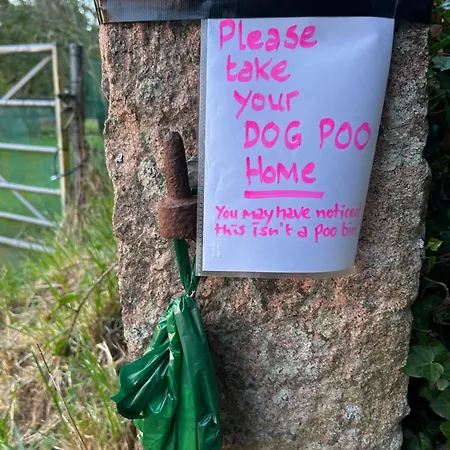 Please
take
your
DOG POO
Home
You may have noticed
this isn't a poo bin.